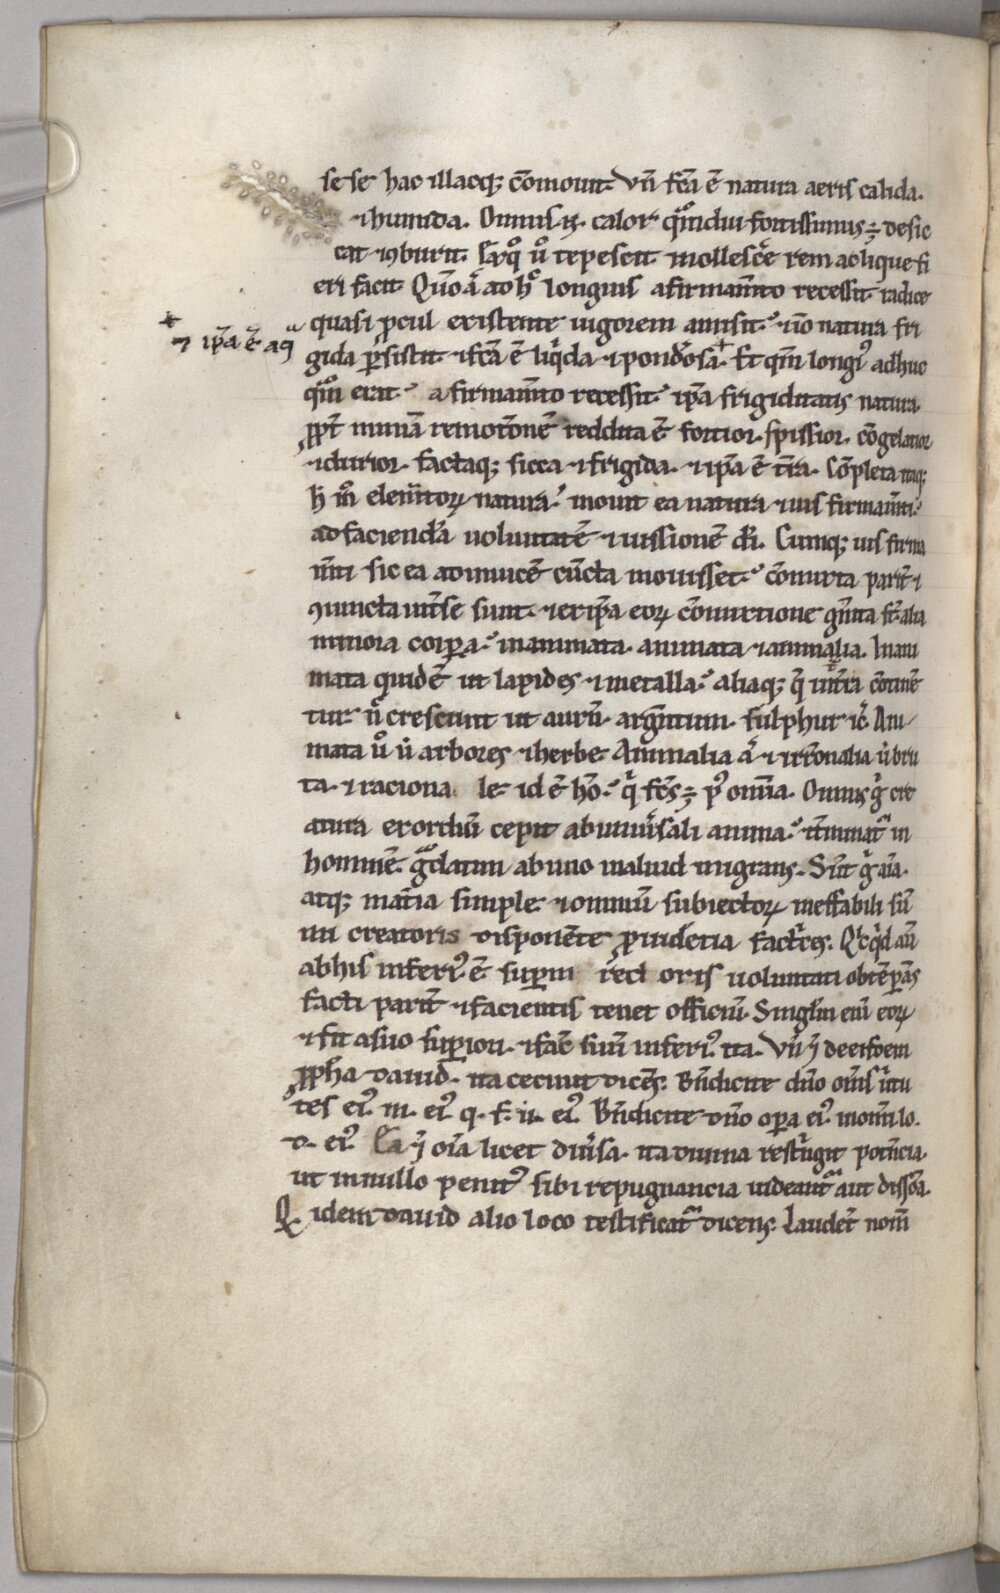 se se hac illacq; cōmouit. Vn̄ fc̄a ē natura aeris calida.
⁊ humida. Omnis .n. calor qͣm̊diu fortissimus ÷ desic
cat ⁊ ↄburit. Exq̊ u̅o tepescit mollesc̄e rem ac liquefi
eri facit. Qm̄o aͥ ab h̊ longius a firmam̄to recessit radice
quasi ꝓcul existente uigorem amisit. ⁊ iō natura fri
⁊ ip̄a ē aqͣ
gida ꝑsistit. ⁊ fc̄a ē liq̇da ⁊ pond̄osa. Et qm̄ longiꝰ adhuc
qͣm̊ erat a firmam̄to recessit. ip̄a frigiditatis natura
ꝓpt̄ nimiā remotōnē reddita ē fortior. spissior. cōgelatior
⁊ durior. factaq; sicca ⁊ frigida. ⁊ ip̄a ē tr̄a. Cōpleta itaq;
h̄ m̊ elem̄toꝝ natura. mouit ea natura ⁊ uis firmam̄ti.
ad faciend̄a uoluntatē ⁊ iussionē dī. Cumq; uis firma
m̄ti sic ea adinuicē cūcta mouisset. cōmixta parit̄ ⁊
ↄiuncta int̄ se sunt. ⁊ ex ip̄a eoꝝ cōmixtione gn̄ita st̄ alia
minora corꝑa. inanimata. animata ⁊ animalia. Inani
mata quidē ut lapides ⁊ metalla. aliaq; q̄ int̄ra cōtinē
tur n̄ crescunt ut aurū. argn̄tum. sulphur ⁊c̄. Ani
mata u̅o ut arbores ⁊ herbe. Animalia aͥ ⁊ irrōnalia ut bru
ta. ⁊ raciona le. id ē hō. qͥ fc̄s ÷ pꝰ om̄ia. Omnis gͦ cre
atura exordiū cepit ab uniūsali anima. t̄minatͬ in
hominē gͣdatim ab uno in aliud migrans. Sīt gͦ aīa.
atq; mat̄ia simple. ⁊ omniū subiectoꝝ ineffabili sūⁱ
mi creatoris disponēte ꝓuidētia factͥces. Qͥcqͥd aū
ab his inferiꝰ ē suꝑiori oris uoluntati obtēꝑās
facti parit̄ ⁊ facientis tenet officiū. Singl̄m eni eoꝝ
⁊ fit a suo suꝑiori. ⁊ fac̄ suū inferiꝰ. ita. Vn̄ ⁊
ꝓph̄a dauid. ita cecinit dicēs. Bn̄dicite dn̄o om̄s uͥtu
tes eiꝰ. m. eiꝰ q. f. u. eiꝰ. Bn̄dicite dn̄o oꝑa eiꝰ. in om̄i lo.
d. eiꝰ. Ea ⁊ oīa licet diūsa. ita diuina restͥngit potn̄cia.
ut in nullo penitꝰ sibi repugnancia uideantͬ aut dissōa.
Qͦ idem dauid alio loco testificatͬ dicens. Laudet̄ nom̄